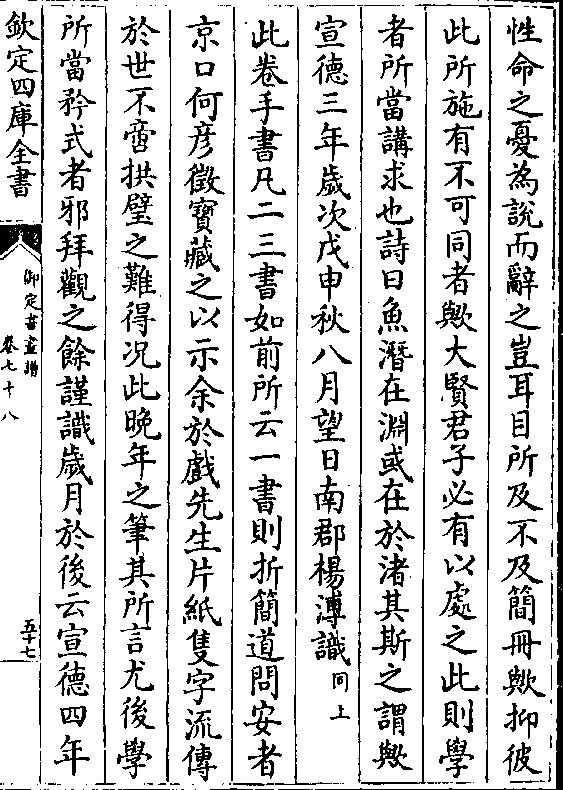 性命之憂為說而辭之豈耳目所及不及簡冊歟抑彼
此所施有不可同者歟大賢君子必有以處之此則學
者所當講求也詩曰魚潛在淵或在於渚其斯之謂歟
宣德三年歲次戊申秋八月望日南郡楊溥識同上
此卷手書凡二三書如前所云一書則折簡道問安者
京口何彥徵寶藏之以示余於戲先生片紙隻字流傳
於世不啻拱璧之難得况此晚年之筆其所言尤後學
所當矜式者邪拜觀之餘謹識歲月於後云宣德四年
欽定四庫全書
御定書畫譜
卷七十八
五十七